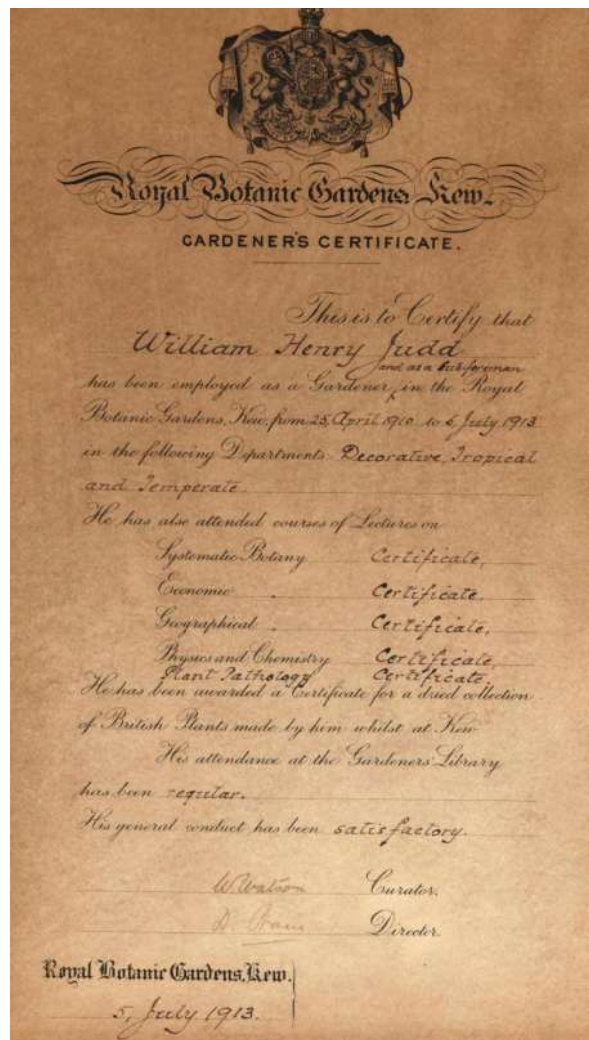 Royal Botanic Gardens, Kew.
GARDENER'S CERTIFICATE.
This is to Certify that
William Henry Judd
and as a Sub-foreman
has been employed as a Gardener, in the Royal
Botanic Gardens, Kew, from 25, April 1910 to 5, July 1913
in the following Departments Decorative, Tropical
and Temperate.
He has also attended courses of Lectures on
Systematic Botany Certificate,
Economic „ Certificate.
Geographical „ Certificate,
Physics and Chemistry Certificate,
Plant Pathology Certificate.
He has been awarded a Certificate for a dried collection
of British Plants made by him whilst at Kew
His attendance at the Gardeners' Library
has been regular.
His general conduct has been satisfactory.
W. Watson Curator.
D. Director
Royal Botanic Gardens, Kew.
5, July 1913.